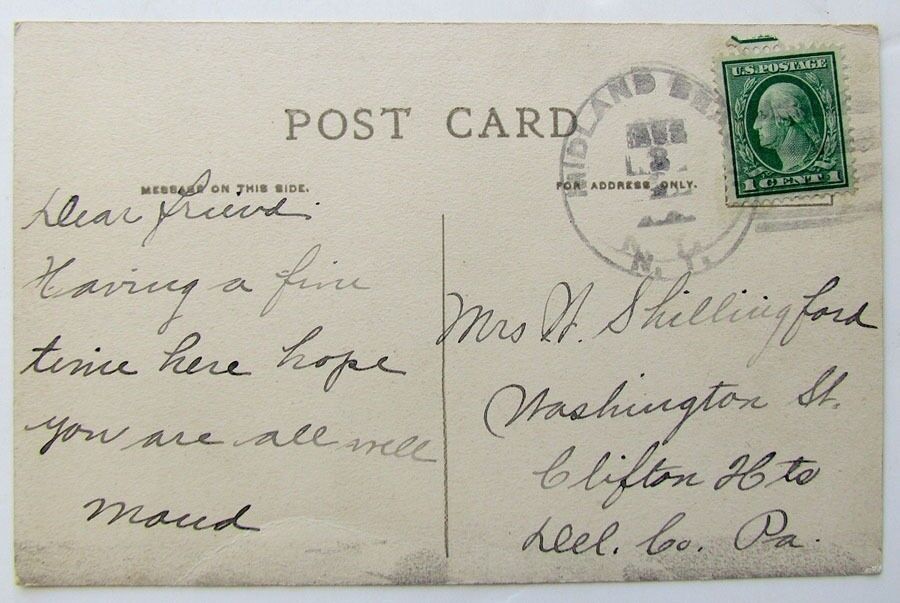 POST CARD
MESSAGE ON THIS SIDE.
FOR ADDRESS ONLY.
U.S. POSTAGE
1 CENT 1
MIDLAND
AUG
3
N. Y.
Dear friend.
Having a fine
time here hope
you are all well
Maud
Mrs W. Shillingford
Washington St.
Clifton Hts
Del. Co. Pa.